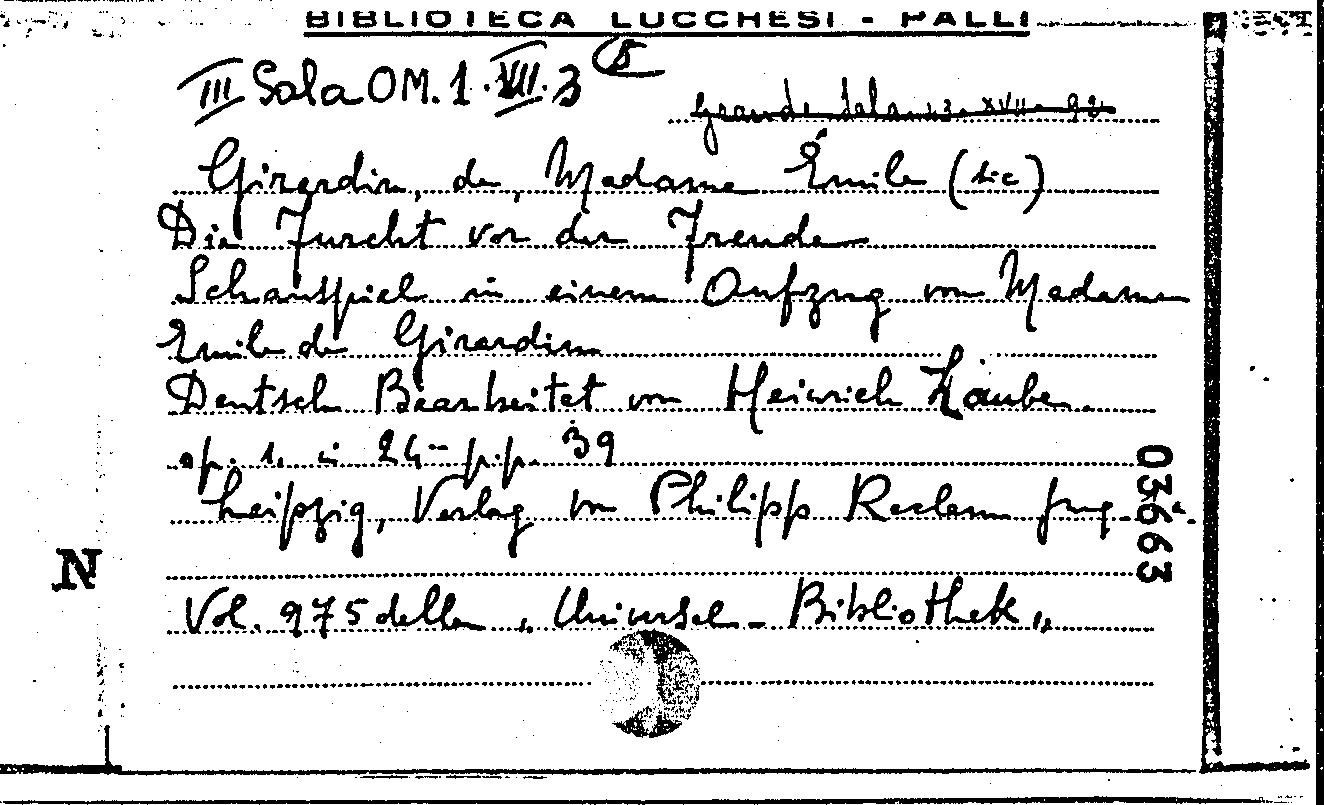 BIBLIOTECA LUCCHESI - PALLI
III Sala OM. 1. VII. 3
Grande Sala 23. XVII. 92
Girardin, de, Madame Émile (sic)
Die Furcht vor der Freude
Schauspiel in einem Aufzug von Madame
Emile de Girardin
Deutsch Bearbeitet von Heinrich Laube.
op. 1. in 24- p.p. 39
Leipzig, Verlag von Philipp Reclam jug.
03663
N
Vol. 975 della "Universel-Bibliothek"